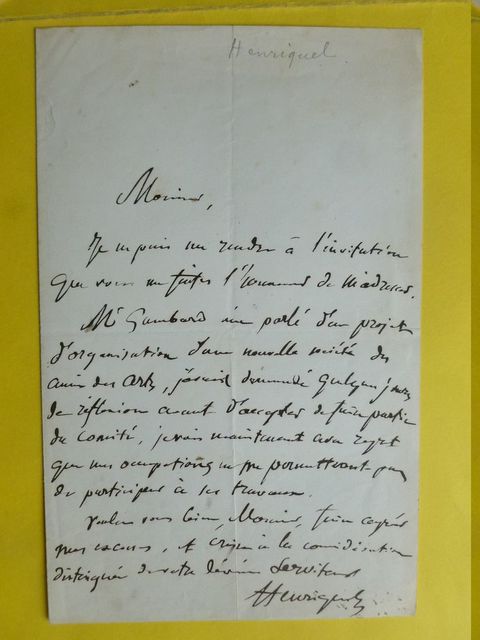 Henriquel
Monsieur,
Je ne puis me rendre à l'invitation
que vous me faites l'honneur de m'adresser.
Mr Gambard m'a parlé d'un projet
d'organisation d'une nouvelle société des
amis des arts, j'avais demandé quelques jours
de réflexion avant d'accepter de faire partie
du comité, je vois maintenant avec regret
que mes occupations ne me permettront pas
de participer à ses travaux.
Veuillez bien, Monsieur, agréer
mes excuses, et croire à la considération
distinguée de votre dévoué serviteur
Henriquel